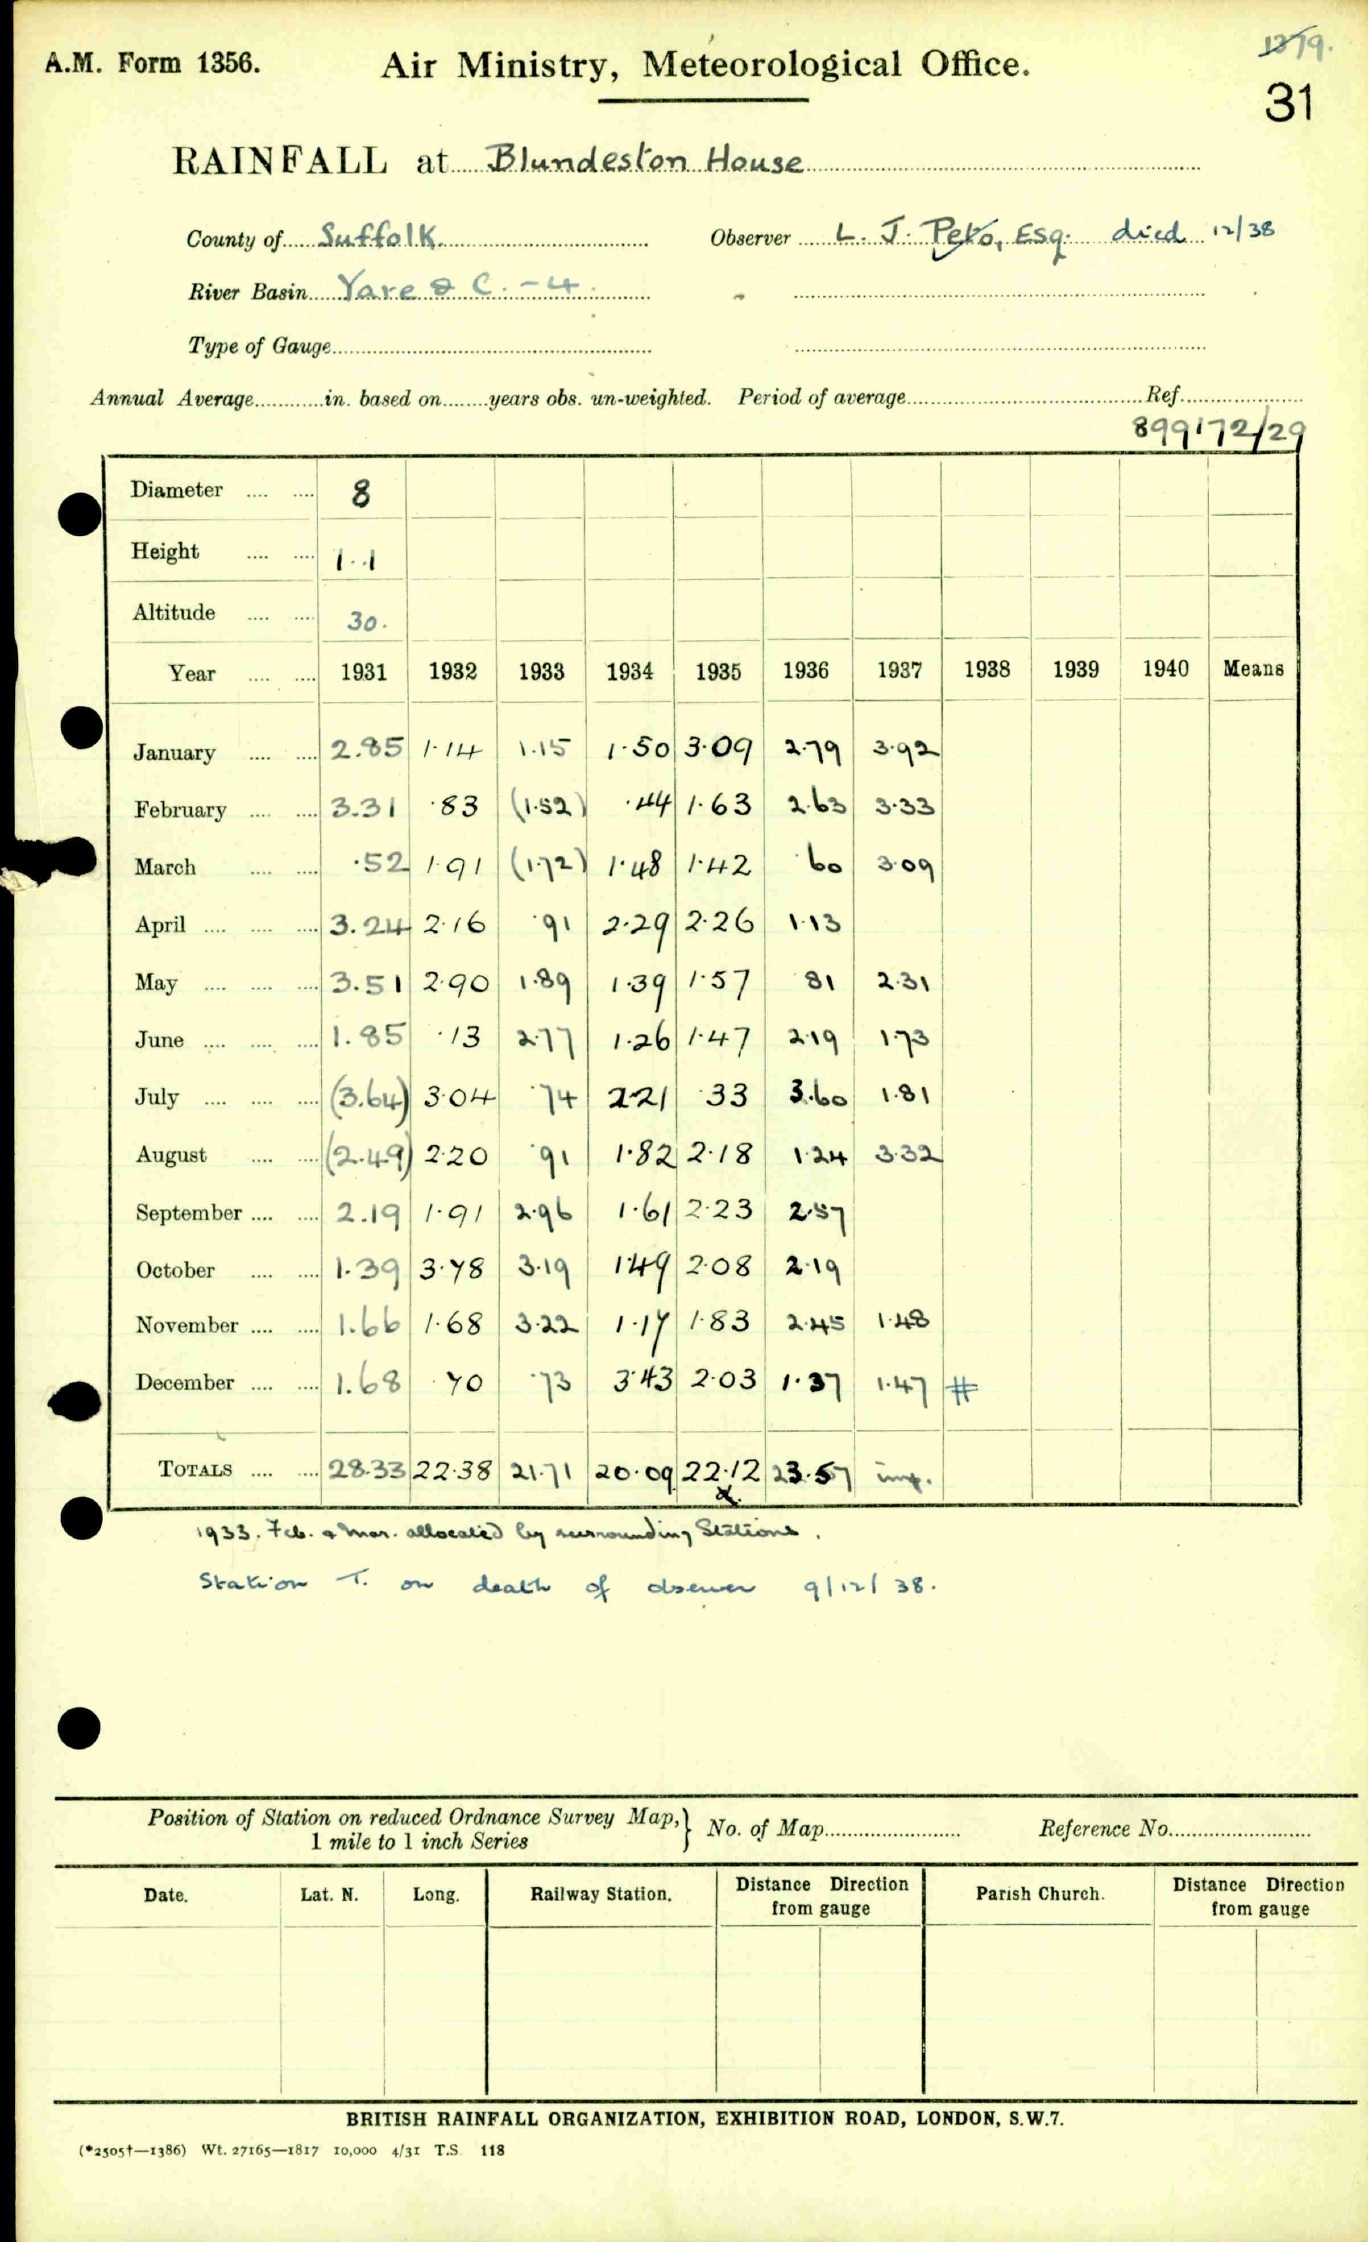 A.M. Form 1356. Air Ministry, Meteorological Office. 1379.
31
RAINFALL at Blundeston House
County of Suffolk Observer L. J. Peto, Esq. died 12/38
River Basin Yare & C. - 4.
Type of Gauge
Annual Average in. based on years obs. un-weighted. Period of average Ref.
899172/29
Diameter 8
Height 1.1
Altitude 30.
Year 1931 1932 1933 1934 1935 1936 1937 1938 1939 1940 Means
January 2.85 1.14 1.15 1.50 3.09 2.79 3.92
February 3.31 .83 (1.52) .44 1.63 2.63 3.33
March .52 1.91 (1.72) 1.48 1.42 .60 3.09
April 3.24 2.16 .91 2.29 2.26 1.13
May 3.51 2.90 1.89 1.39 1.57 81 2.31
June 1.85 .13 2.77 1.26 1.47 2.19 1.73
July (3.64) 3.04 .74 2.21 .33 3.60 1.81
August (2.49) 2.20 .91 1.82 2.18 1.24 3.32
September 2.19 1.91 2.96 1.61 2.23 2.57
October 1.39 3.78 3.19 1.49 2.08 2.19
November 1.66 1.68 3.22 1.17 1.83 2.45 1.48
December 1.68 .70 .73 3.43 2.03 1.37 1.47 #
TOTALS 28.33 22.38 21.71 20.09 22.12 23.57 imp.
1933. Feb. & Mar. allocated by surrounding Stations.
Station T. on death of observer 9/12/38.
Position of Station on reduced Ordnance Survey Map, } No. of Map Reference No.
1 mile to 1 inch Series
Date. Lat. N. Long. Railway Station. Distance Direction from gauge Parish Church. Distance Direction from gauge
BRITISH RAINFALL ORGANIZATION, EXHIBITION ROAD, LONDON, S.W.7.
(*2505†—1386) Wt. 27165—1817 10,000 4/31 T.S. 118